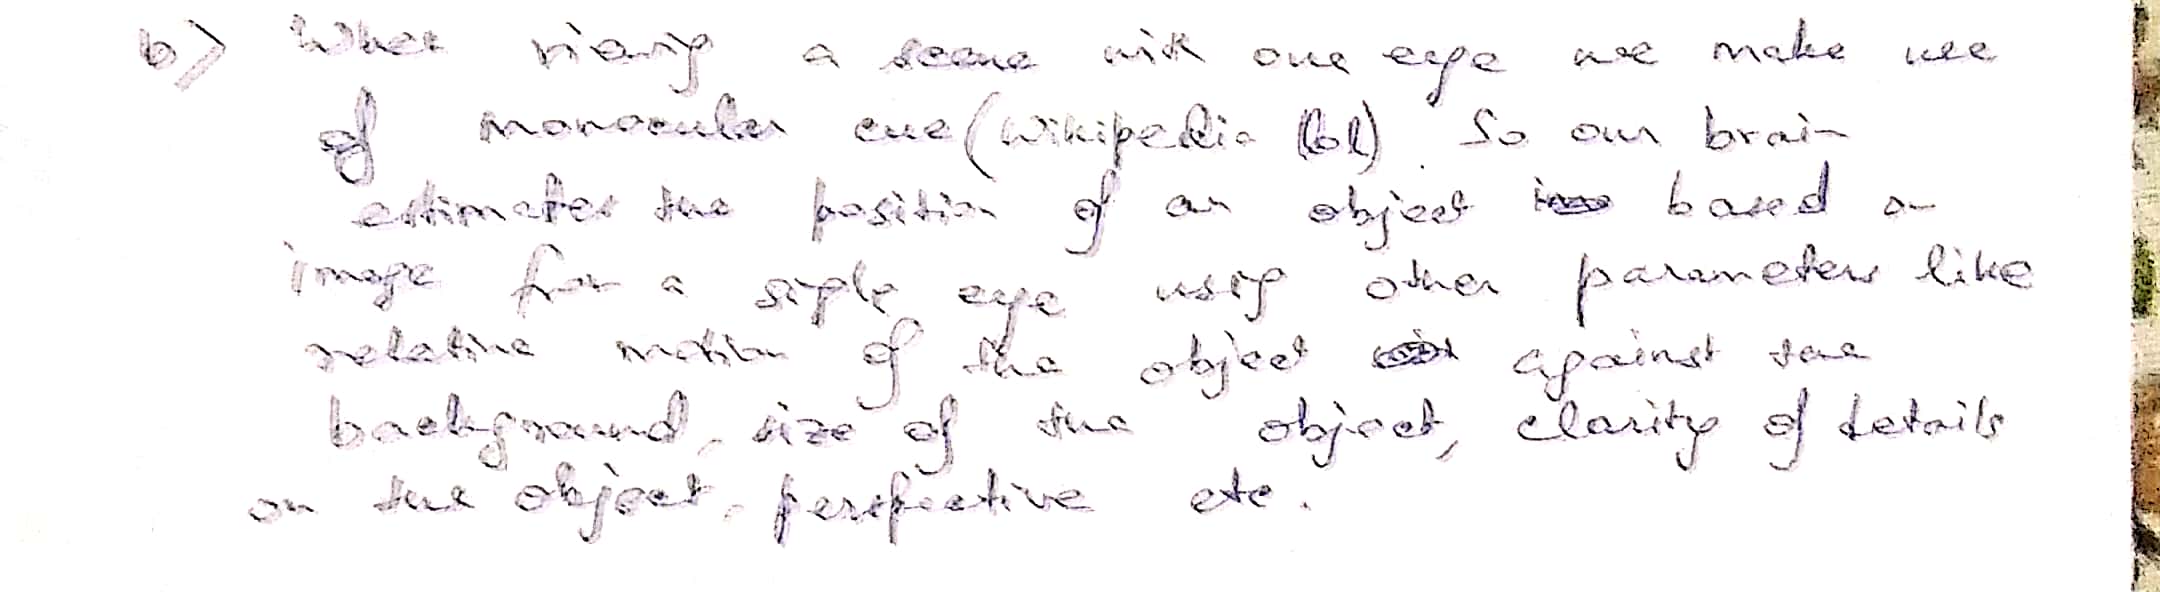 b) When viewing a scene with one eye we make use
of monocular cue (Wikipedia lol). So our brain
estimates the position of an object based on
image from a single eye using other parameters like
relative motion of the object against the
background, size of the object, clarity of details
on the object, perspective etc.